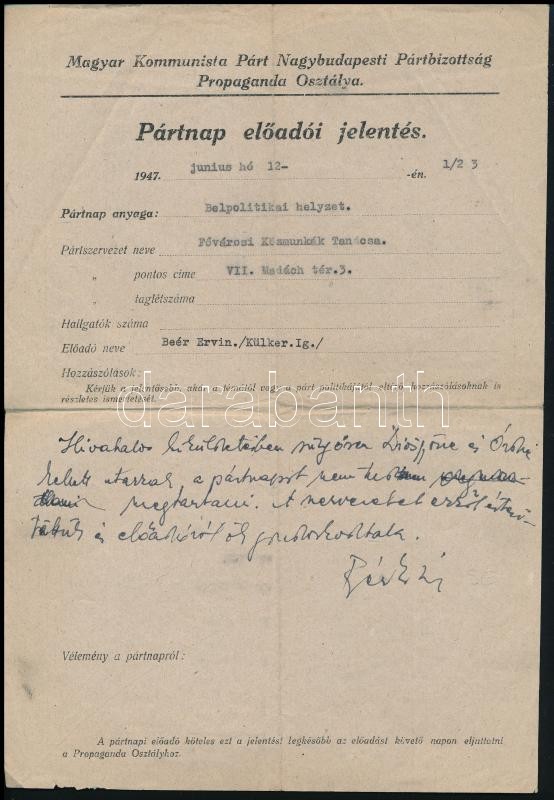 Magyar Kommunista Párt Nagybudapesti Pártbizottság
Propaganda Osztálya.
Pártnap előadói jelentés.
1947. junius hó 12- -én. 1/2 3
Pártnap anyaga: Belpolitikai helyzet.
Pártszervezet neve Fővárosi Közmunkák Tanácsa.
„ pontos címe VII. Madách tér.3.
„ taglétszáma
Hallgatók száma
Előadó neve Beér Ervin./Külker.Ig./
Hozzászólások:
Kérjük a jelentősebb, akár a témától vagy a párt politikájától eltérő hozzászólásoknak is
részletes ismertetését.
darabanth
Hivatalos kiküldetésben sürgősen Diósgyőrre és Ózdra
kellett utaznak, a pártnapot nem
megtartani. A szervezetet erről értesí-
tettük és előadóról ők gondoskodtak.
Vélemény a pártnapról:
A pártnapi előadó köteles ezt a jelentést legkésőbb az előadást követő napon eljuttatni
a Propaganda Osztályhoz.